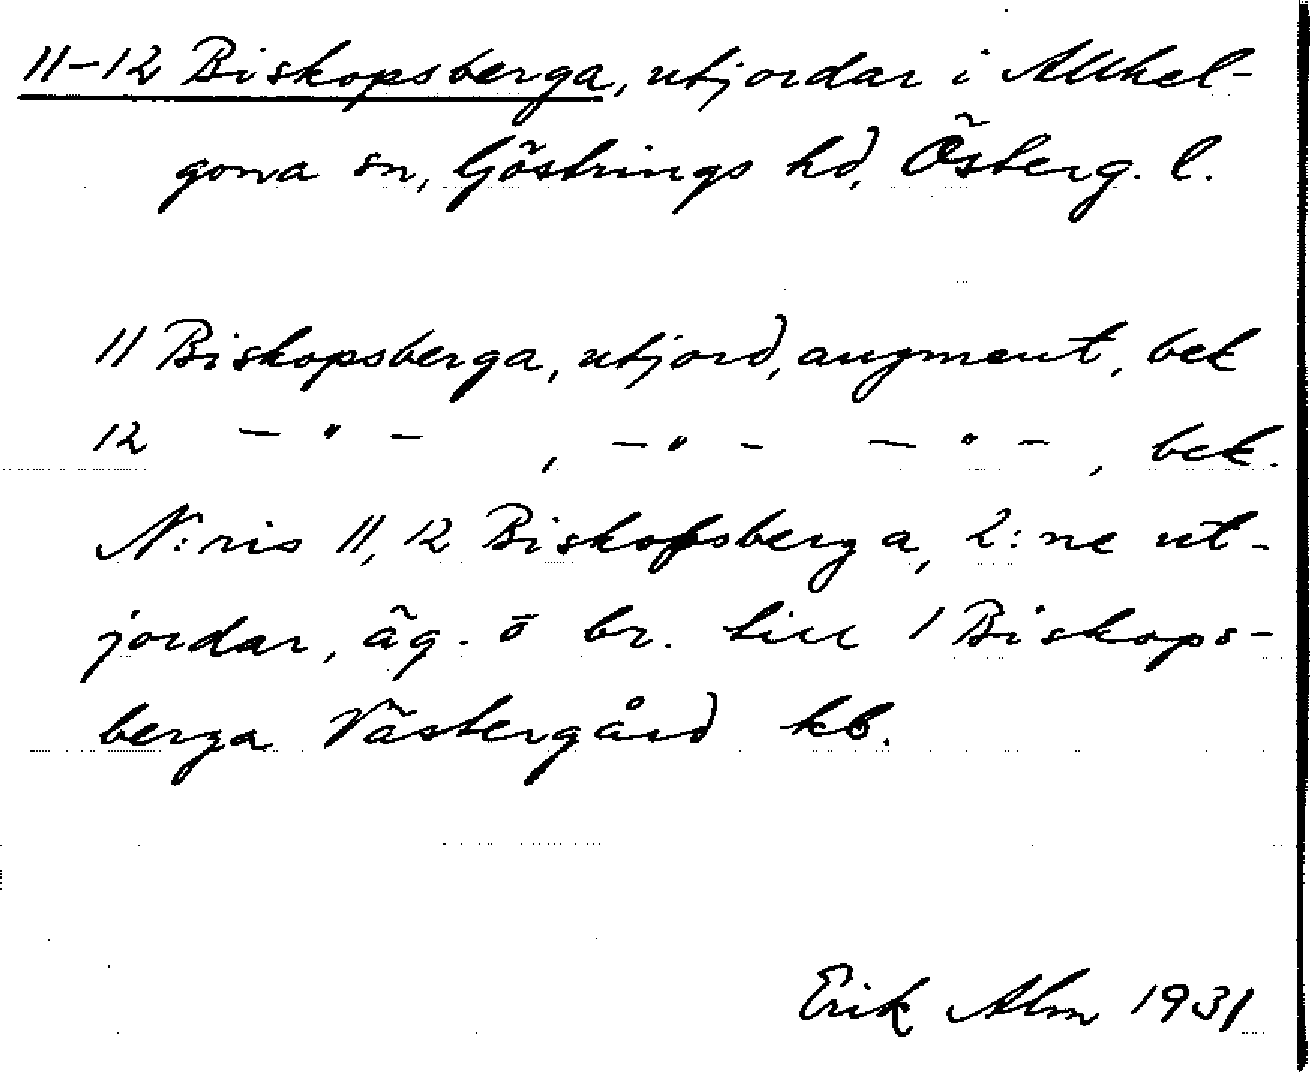 11-12 Biskopsberga, utjordar i Allhel-
gona sn, Göstrings hd, Österg. l.
11 Biskopsberga, utjord, augment, bek
12 - " - , - " - - " - , bek.
N:ris 11, 12 Biskopsberga, 2:ne ut-
jordar, äg. o br. till 1 Biskops-
berga Västergård kb.
Erik Alm 1931